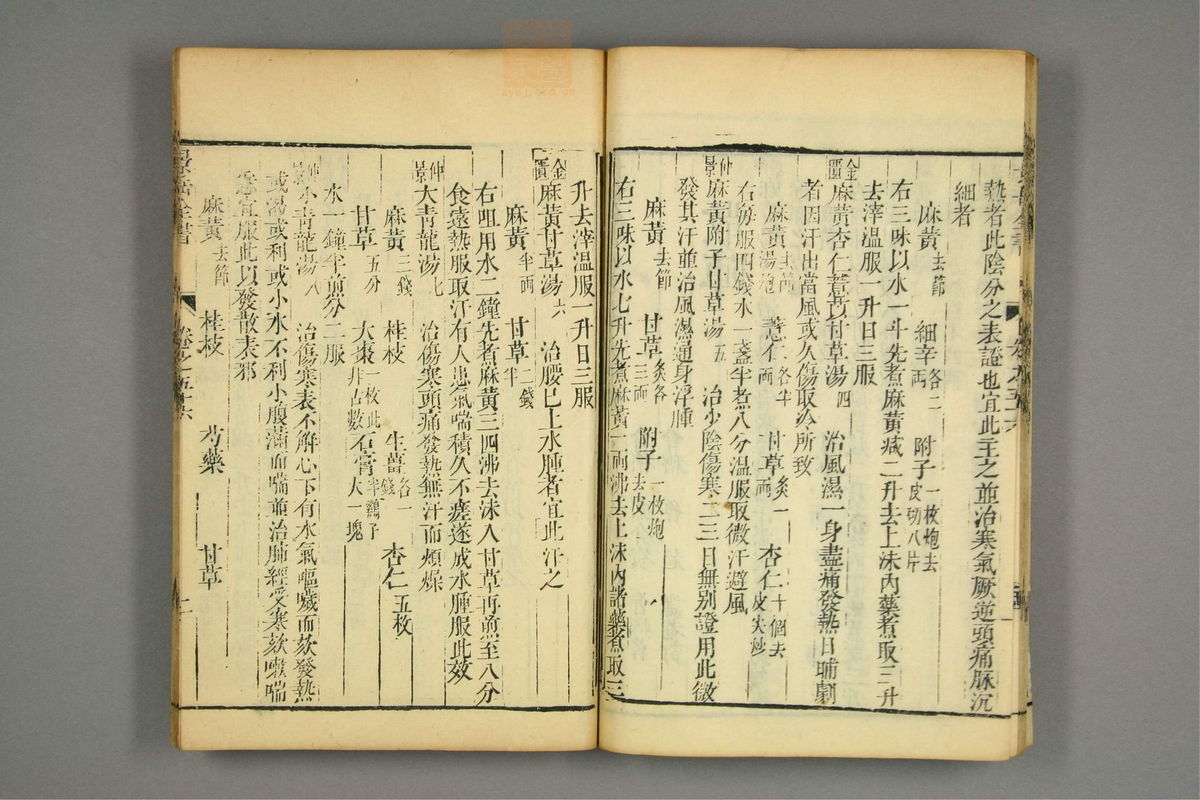 熱者此陰分之表證也宜此主之並治寒氣厥逆頭痛脉沉
細者
麻黃去節 細辛各二両 附子一枚炮去皮切八片
右三味以水一斗先煮麻黃减二升去上沫内藥煮取三升
去滓温服一升日三服
金匱麻黃杏仁薏苡甘草湯四 治風濕一身盡痛發熱日晡劇
者因汗出當風或久傷取冷所致
麻黃去節湯泡 薏仁各半両 甘草炙一両 杏仁十個去皮尖炒
右每服四錢水一盞半煮八分温服取微汗避風
仲景麻黃附子甘草湯五 治少陰傷寒二三日無别證用此微
發其汗並治風濕通身浮腫
麻黃去節 甘草炙各三両 附子一枚炮去皮
右三味以水七升先煮麻黃一両沸去上沫内諸藥煮取三
升去滓温服一升日三服
金匱麻黃甘草湯六 治腰已上水腫者宜此汗之
麻黃半両 甘草二錢半
右咀用水二鐘先煮麻黃三四沸去沫入甘草再煎至八分
食遠熱服取汗有人患氣喘積久不瘥遂成水腫服此效
仲景大青龍湯七 治傷寒頭痛發熱無汗而煩燥
麻黃三錢 桂枝 生薑各一錢 杏仁五枚
甘草五分 大棗一枚此非古數 石膏半鷄子大一塊
水一鐘半煎分二服
仲景小青龍湯八 治傷寒表不解心下有水氣嘔噦而欬發熱
或渴或利或小水不利小腹滿而喘並治肺經受寒欬嗽喘
急宜服此以發散表邪
麻黃去節 桂枝 芍藥 甘草
景岳全書 卷之五十六